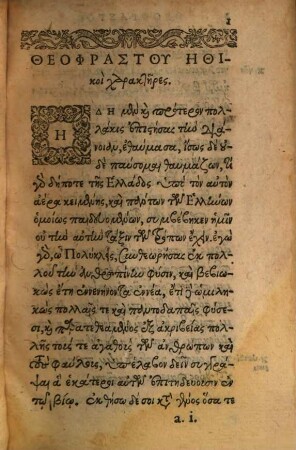 ΘΕΟΦΡΑΣΤΟΥ ΗΘΙ-
κοὶ χαρακτῆρες.
ΗΔΗ μὲν καὶ πρότερον πολ-
λάκις ἐπιστήσας τὴν διά-
νοιαν, ἐθαύμασα, ἴσως δὲ οὐ-
δὲ παύσομαι θαυμάζων, τί
γὰρ δήποτε τῆς Ἑλλάδος ὑπὸ τὸν αὐτὸν
ἀέρα κειμένης, καὶ πάντων τῶν Ἑλλήνων
ὁμοίως παιδευομένων, συμβέβηκεν ἡμῖν
οὐ τὴν αὐτὴν τάξιν τῶν τρόπων ἔχειν. ἐγὼ
γὰρ, ὦ Πολύκλεις, συνθεωρήσας ἐκ πολ-
λοῦ τὴν ἀνθρωπίνην φύσιν, καὶ βεβιω-
κὼς ἔτη ἐννενήκοντα ἐννέα, ἔτι ὡμιληκ-
κὼς πολλαῖς τε καὶ παντοδαπαῖς φύσε-
σι, καὶ παρατεθεαμένος ἐξ ἀκριβείας πολ-
λῆς τούς τε ἀγαθοὺς τῶν ἀνθρώπων καὶ
τοὺς φαύλους, ὑπέλαβον δεῖν συγγρά-
ψαι ἃ ἑκάτεροι αὐτῶν ἐπιτηδεύουσιν ἐν
τῷ βίῳ. ἐκθήσω δέ σοι κατὰ γένος ὅσα τε
a. i.